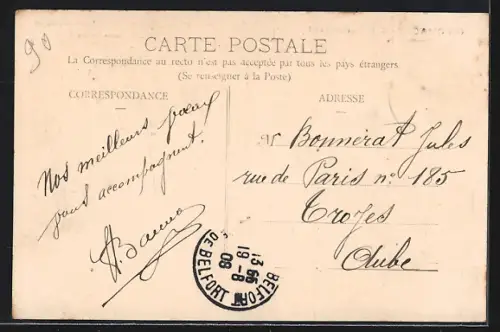 90
CARTE POSTALE
La Correspondance au recto n'est pas acceptée par tous les pays étrangers.
(Se renseigner à la Poste)
CORRESPONDANCE
Nos meilleurs vœux
vous accompagnent.
ADRESSE
Mr Bonnerat Jules
rue de Paris no 185
Troyes
Aube
BELFORT
DE BELFORT
19 - 8
08